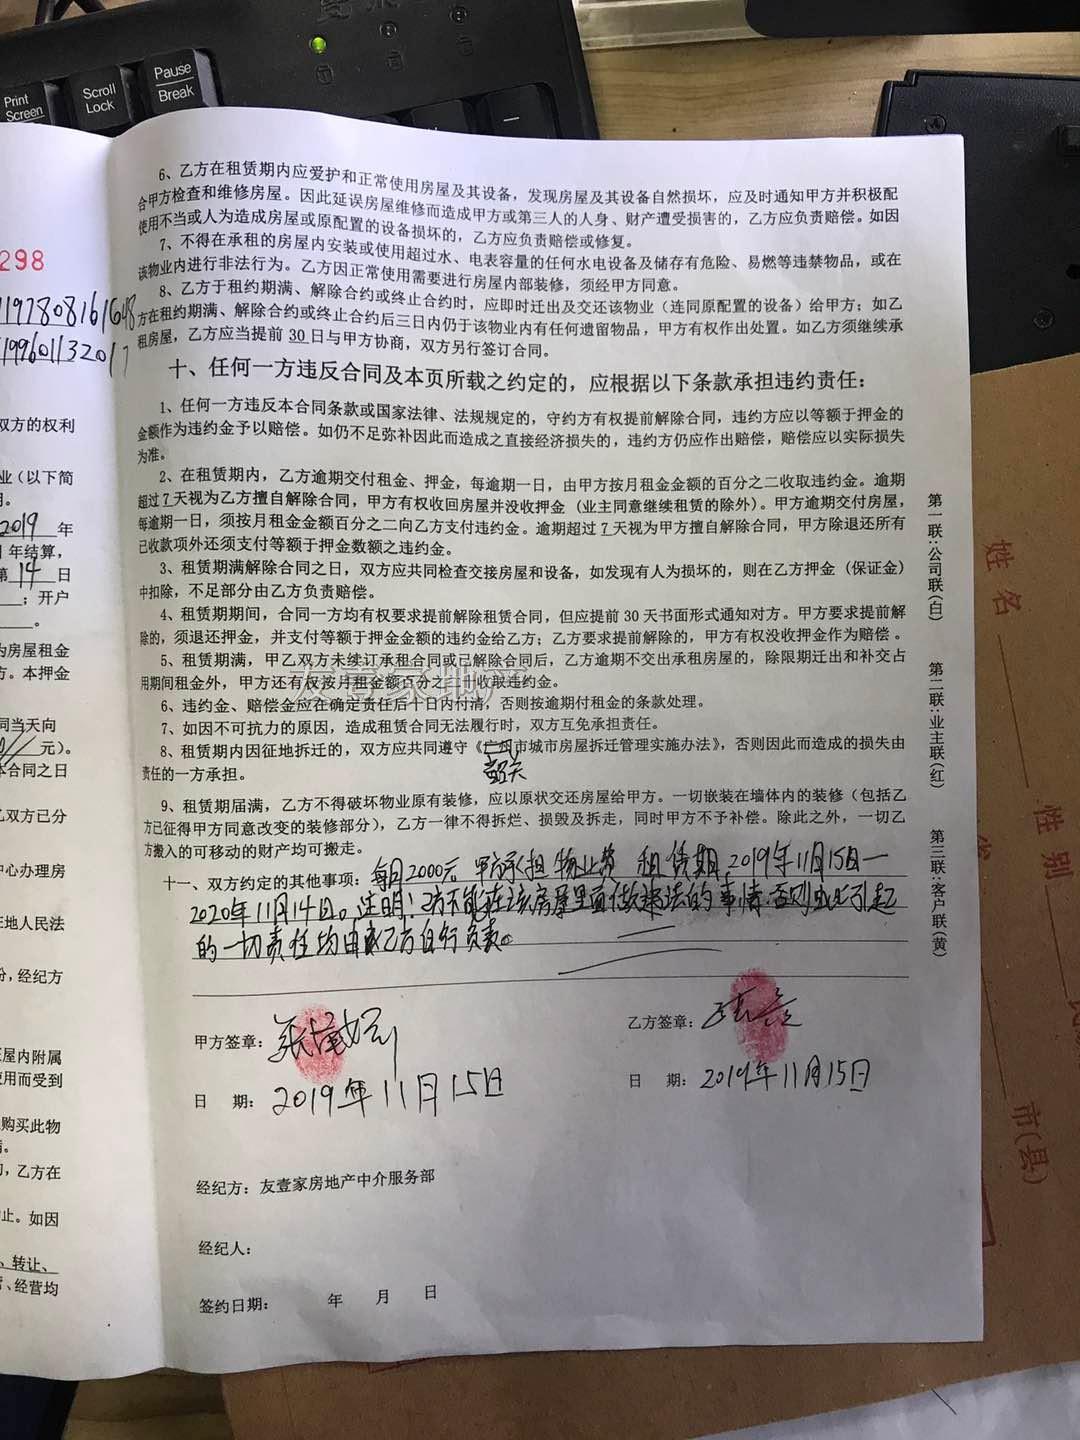 Print
Screen
Scroll
Lock
Pause
Break
298
双方的权利
业（以下简
2019 年
年结算，
第 14 日
；开户
为房屋租金
方。本押金
同当天向
元）。
本合同之日
乙双方已分
中心办理房
在地人民法
份，经纪方
屋内附属
使用而受到
购买此物
，乙方在
止。如因
、转让、
、经营均
6、乙方在租赁期内应爱护和正常使用房屋及其设备，发现房屋及其设备自然损坏，应及时通知甲方并积极配
合甲方检查和维修房屋。因此延误房屋维修而造成甲方或第三人的人身、财产遭受损害的，乙方应负责赔偿。如因
使用不当或人为造成房屋或原配置的设备损坏的，乙方应负责赔偿或修复。
7、不得在承租的房屋内安装或使用超过水、电表容量的任何水电设备及储存有危险、易燃等违禁物品，或在
该物业内进行非法行为。乙方因正常使用需要进行房屋内部装修，须经甲方同意。
8、乙方于租约期满、解除合约或终止合约时，应即时迁出及交还该物业（连同原配置的设备）给甲方；如乙
方在租约期满、解除合约或终止合约后三日内仍于该物业内有任何遗留物品，甲方有权作出处置。如乙方须继续承
租房屋，乙方应当提前 30 日与甲方协商，双方另行签订合同。
十、任何一方违反合同及本页所载之约定的，应根据以下条款承担违约责任：
1、任何一方违反本合同条款或国家法律、法规规定的，守约方有权提前解除合同，违约方应以等额于押金的
金额作为违约金予以赔偿。如仍不足弥补因此而造成之直接经济损失的，违约方仍应作出赔偿，赔偿应以实际损失
为准。
2、在租赁期内，乙方逾期交付租金、押金，每逾期一日，由甲方按月租金金额的百分之二收取违约金。逾期
超过 7 天视为乙方擅自解除合同，甲方有权收回房屋并没收押金（业主同意继续租赁的除外）。甲方逾期交付房屋，
每逾期一日，须按月租金金额百分之二向乙方支付违约金。逾期超过 7 天视为甲方擅自解除合同，甲方除退还所有
已收款项外还须支付等额于押金数额之违约金。
3、租赁期满解除合同之日，双方应共同检查交接房屋和设备，如发现有人为损坏的，则在乙方押金（保证金）
中扣除，不足部分由乙方负责赔偿。
4、租赁期期间，合同一方均有权要求提前解除租赁合同，但应提前 30 天书面形式通知对方。甲方要求提前解
除的，须退还押金，并支付等额于押金金额的违约金给乙方；乙方要求提前解除的，甲方有权没收押金作为赔偿。
5、租赁期满，甲乙双方未续订承租合同或已解除合同后，乙方逾期不交出承租房屋的，除限期迁出和补交占
用期间租金外，甲方还有权按月租金额百分之二计收取违约金。
友壹家地产
6、违约金、赔偿金应在确定责任后十日内付清，否则按逾期付租金的条款处理。
7、如因不可抗力的原因，造成租赁合同无法履行时，双方互免承担责任。
8、租赁期内因征地拆迁的，双方应共同遵守《广州市城市房屋拆迁管理实施办法》，否则因此而造成的损失由
韶关
责任的一方承担。
9、租赁期届满，乙方不得破坏物业原有装修，应以原状交还房屋给甲方。一切嵌装在墙体内的装修（包括乙
方已征得甲方同意改变的装修部分），乙方一律不得拆烂、损毁及拆走，同时甲方不予补偿。除此之外，一切乙
方搬入的可移动的财产均可搬走。
十一、双方约定的其他事项：每月2000元 甲方承担物业费 租赁期 2019年11月15日一
2020年11月14日。注明！乙方不能在该房屋里面做违法的事情，否则由此引起
的一切责任均由乙方自行负责。
甲方签章：
乙方签章：
日 期：2019年11月15日
日 期：2019年11月15日
经纪方：友壹家房地产中介服务部
经纪人：
签约日期： 年 月 日
第一联：公司联（白）
第二联：业主联（红）
第三联：客户联（黄）
姓名
性别
市（县）